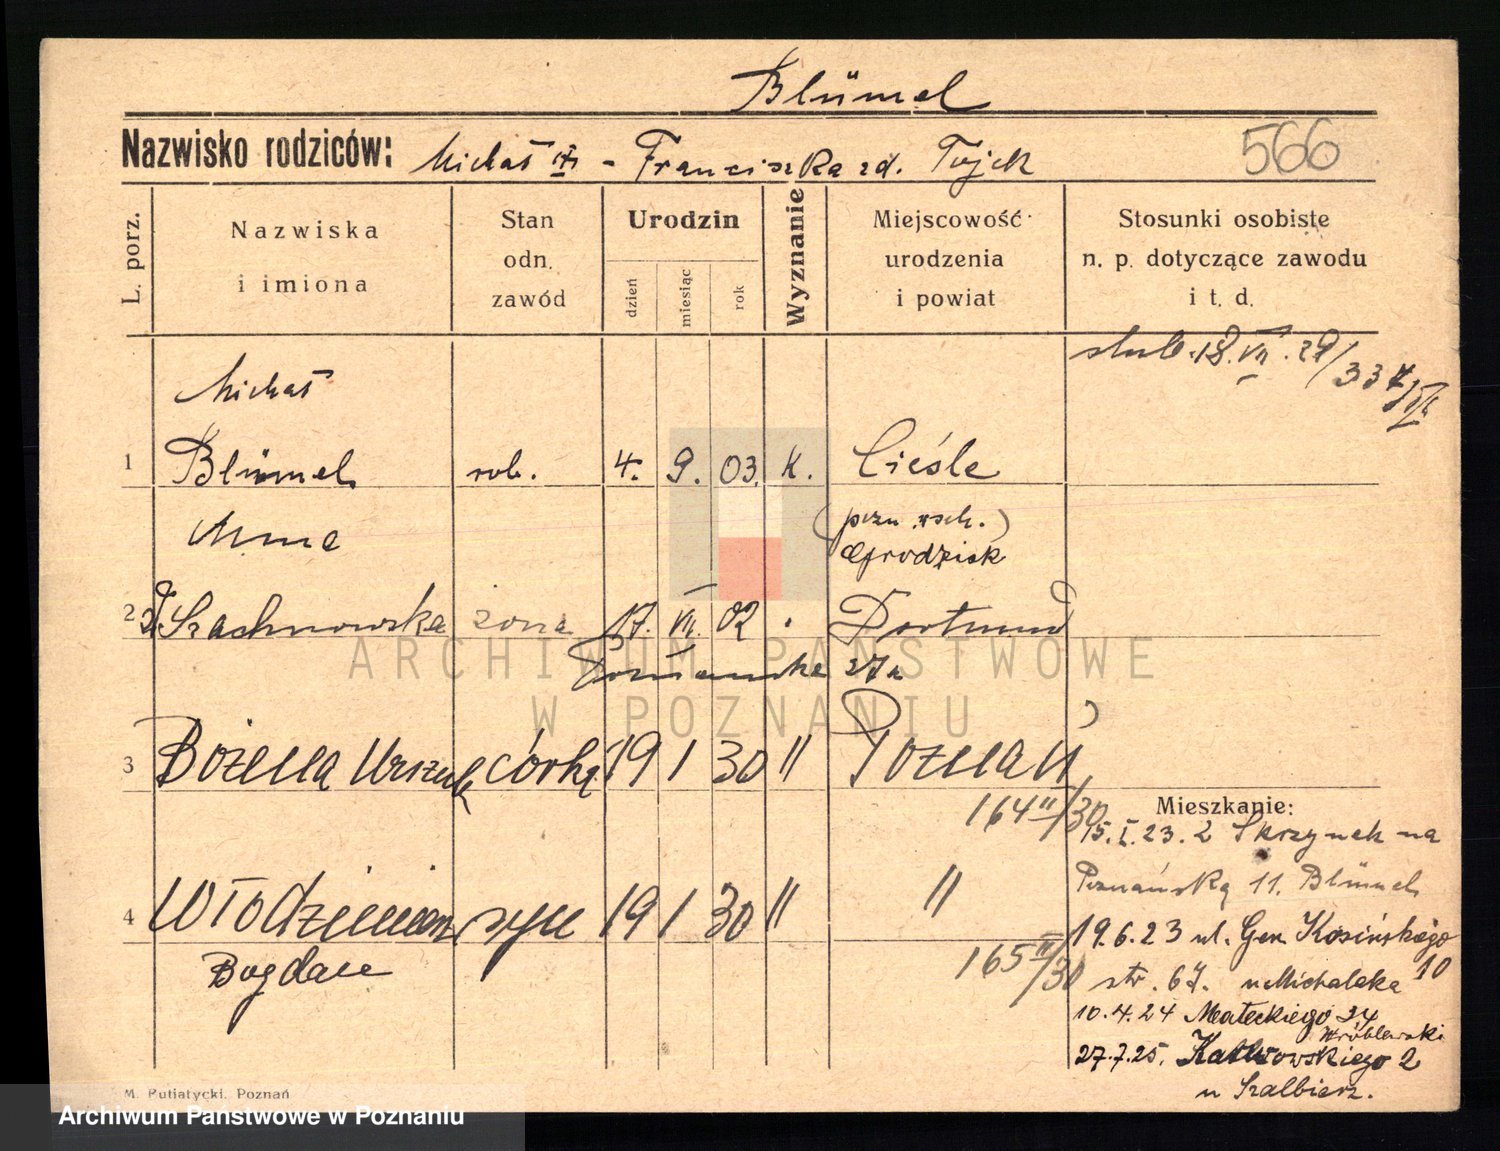 Blümel
Nazwisko rodziców: Michał - Franciszka zd. Tyjek
566
L. porz.
Nazwiska
i imiona
Stan
odn.
zawód
Urodzin
dzień
miesiąc
rok
Wyznanie
Miejscowość
urodzenia
i powiat
Stosunki osobiste
n. p. dotyczące zawodu
i t. d.
ślub. 18. VII. 29/337
Michał
1 Blümel rob. 4. 9. 03. k. Cieśle
Anna (pozn. wsch.)
Grodzisk
2 Szachnowska żona 17. VII. 02 Dortmund
27
3 Bożena Urszula córka 19 1 30 " Poznań
164 II/30
Mieszkanie:
15. I. 23. z Skrzynek na
Poznańską 11. Blümel
4 Włodzimierz syn 19 1 30 " "
Bogdan
165 II/30
19.6.23 ul. Gen. Kosińskiego 10
str. 67. u Michalaka
10.4.24 Małeckiego 34
Wróblewski
27.7.25. 2
u Szalbierz.
M. Putiatycki, Poznań
ARCHIWUM PAŃSTWOWE
W POZNANIU
Archiwum Państwowe w Poznaniu